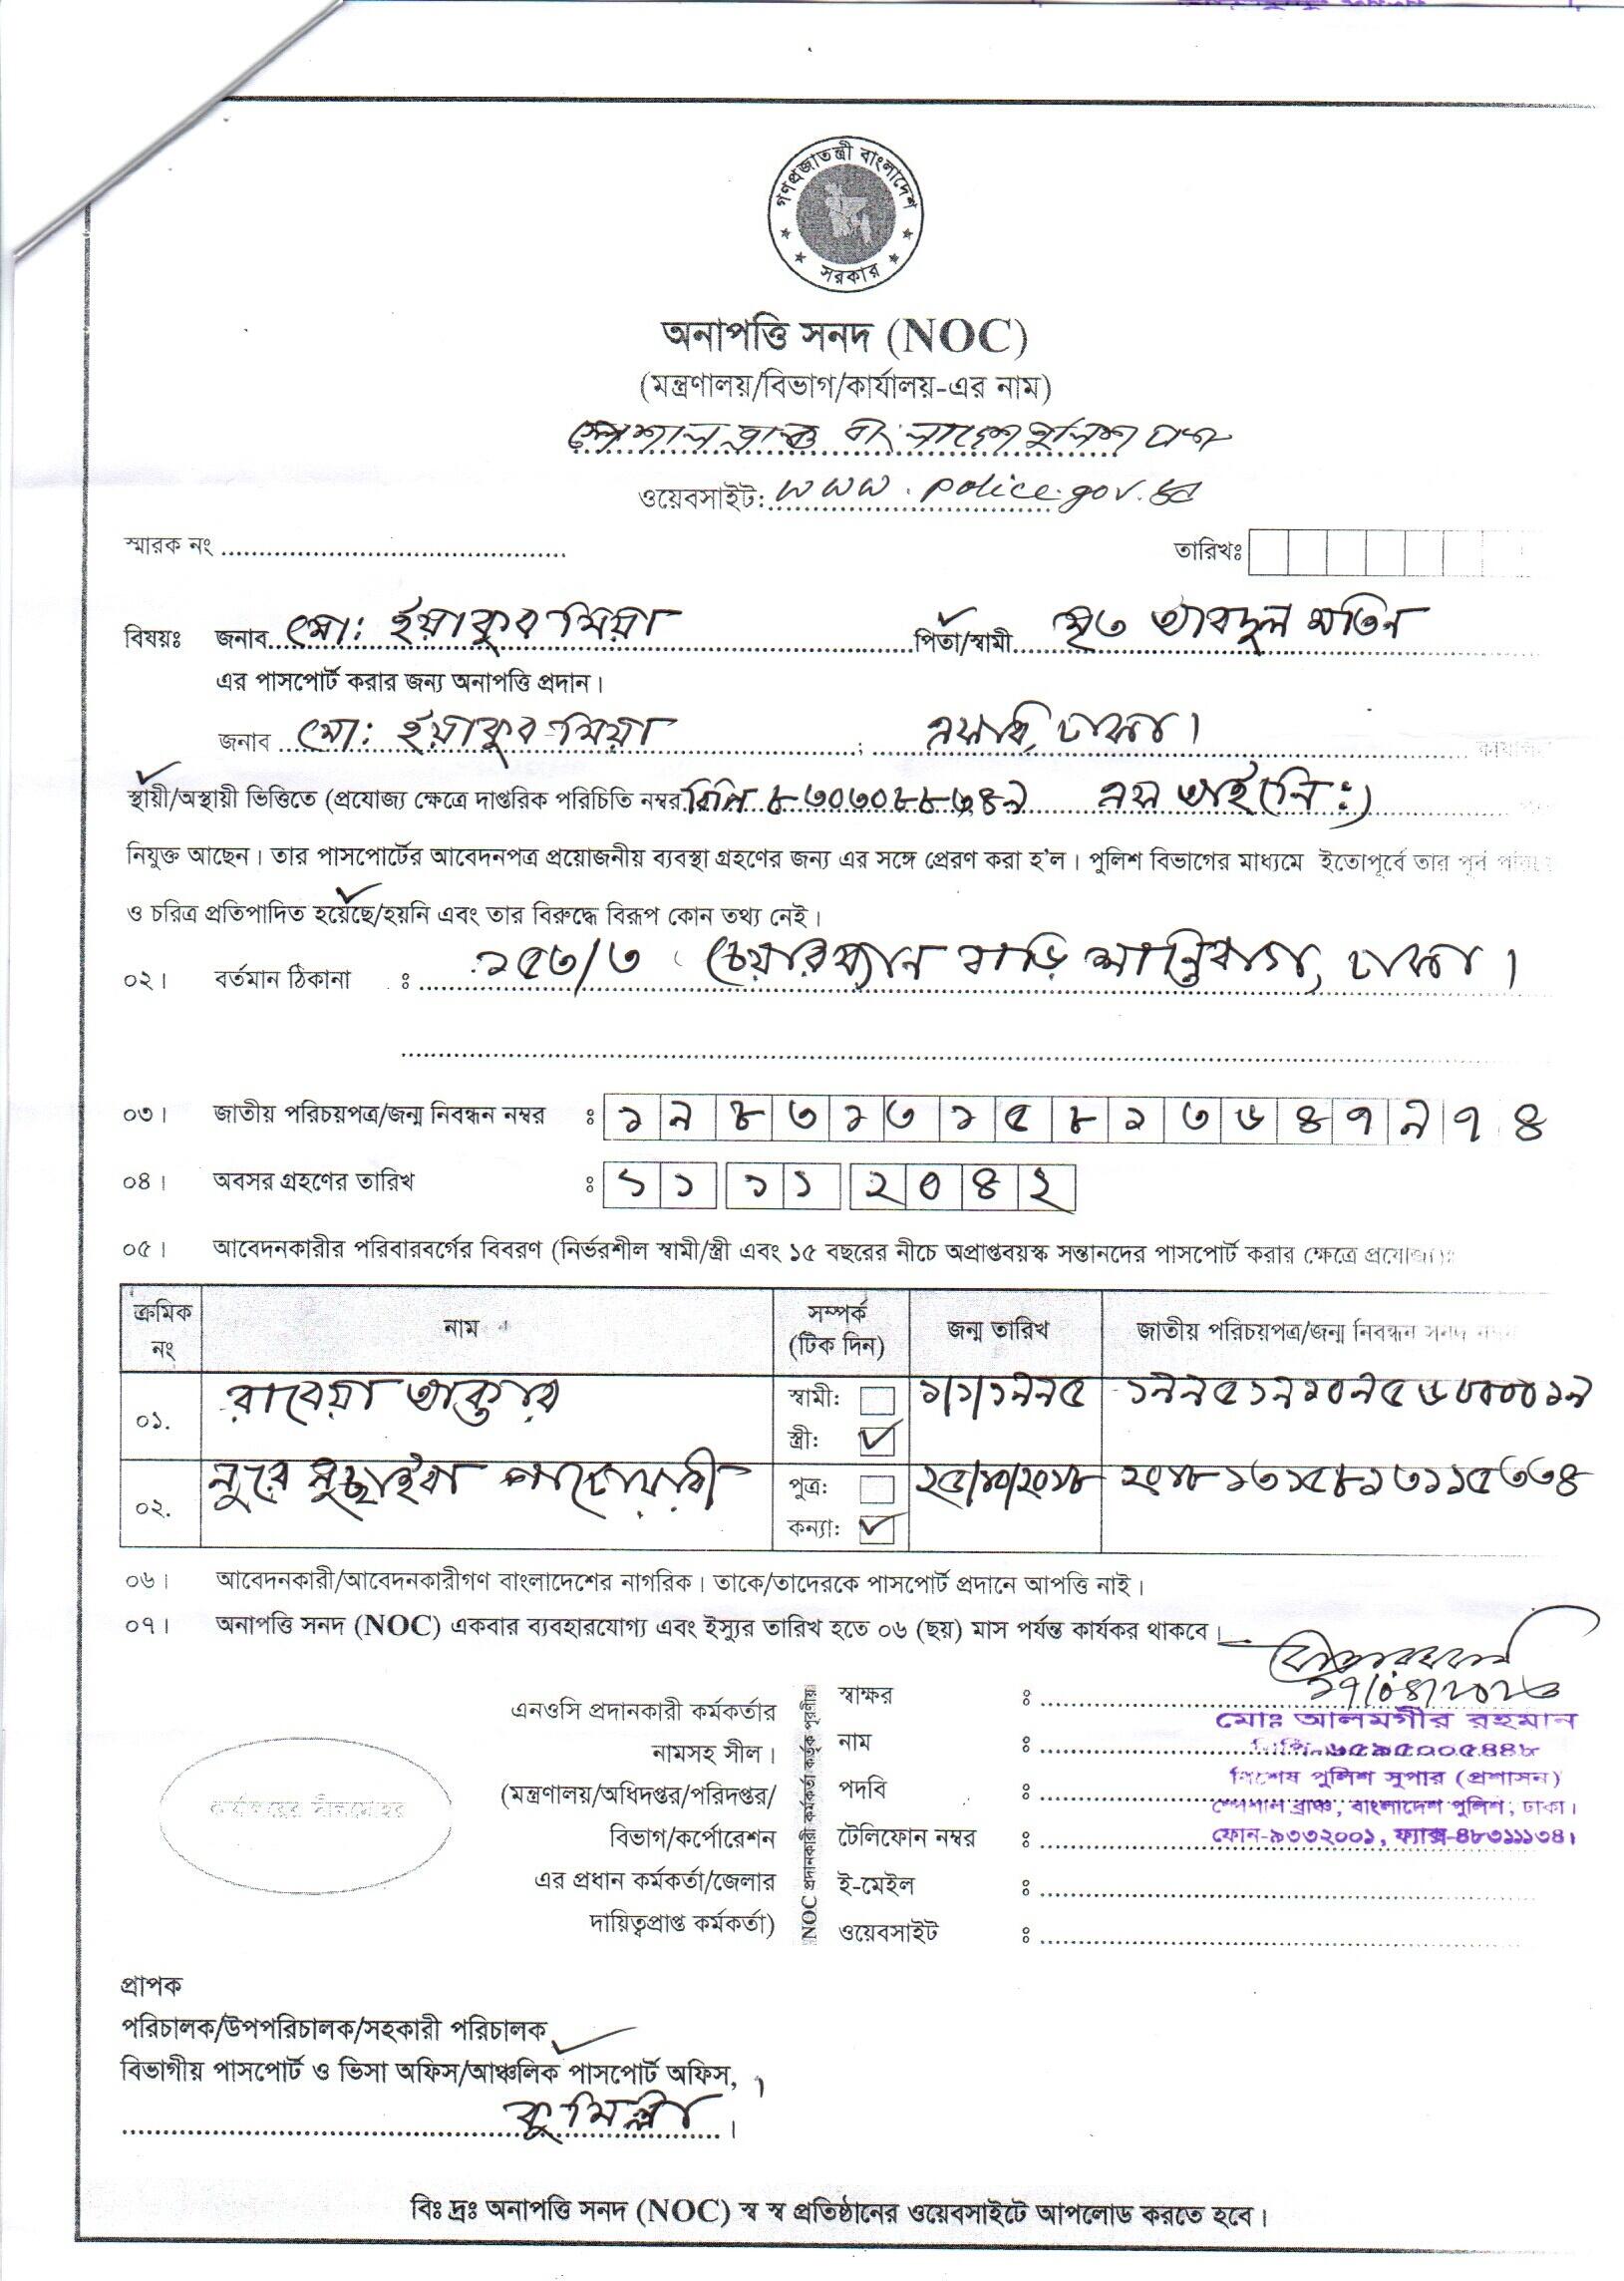 গণপ্রজাতন্ত্রী বাংলাদেশ
সরকার
অনাপত্তি সনদ (NOC)
(মন্ত্রণালয়/বিভাগ/কার্যালয়-এর নাম)
স্পেশাল ব্রাঞ্চ বাংলাদেশ পুলিশ ঢাকা
ওয়েবসাইট: www.police.gov.bd
স্মারক নং
তারিখঃ
বিষয়ঃ জনাব মো: ইয়াকুব মিয়া পিতা/স্বামী মৃত আবদুল মতিন
এর পাসপোর্ট করার জন্য অনাপত্তি প্রদান।
জনাব মো: ইয়াকুব মিয়া ; এসবি, ঢাকা।
স্থায়ী/অস্থায়ী ভিত্তিতে (প্রযোজ্য ক্ষেত্রে দাপ্তরিক পরিচিতি নম্বর বিপি এস আই (নি:)
নিযুক্ত আছেন। তার পাসপোর্টের আবেদনপত্র প্রয়োজনীয় ব্যবস্থা গ্রহণের জন্য এর সঙ্গে প্রেরণ করা হ'ল। পুলিশ বিভাগের মাধ্যমে ইতোপূর্বে তার পূর্ব
ও চরিত্র প্রতিপাদিত হয়েছে/হয়নি এবং তার বিরুদ্ধে বিরূপ কোন তথ্য নেই।
০২। বর্তমান ঠিকানা : ১৫৩/৩ চেয়ারম্যান বাড়ি শান্তিবাগ, ঢাকা।
০৩। জাতীয় পরিচয়পত্র/জন্ম নিবন্ধন নম্বর ঃ ১৯৮৩১৩১৫৮১৩৬৪৭৯৭৪
০৪। অবসর গ্রহণের তারিখ ঃ ১১ ১১ ২০৪২
০৫। আবেদনকারীর পরিবারবর্গের বিবরণ (নির্ভরশীল স্বামী/স্ত্রী এবং ১৫ বছরের নীচে অপ্রাপ্তবয়স্ক সন্তানদের পাসপোর্ট করার ক্ষেত্রে প্রযোজ্য)ঃ
ক্রমিক নং নাম সম্পর্ক (টিক দিন) জন্ম তারিখ জাতীয় পরিচয়পত্র/জন্ম নিবন্ধন সনদ নম্বর
০১. রাবেয়া আক্তার স্বামী: ১/১/১৯৯৫ ১৯৯৫১৯১০৯৫৬০০০০১৯
স্ত্রী: ✓
০২. নুরে নুছাইবা পাটোয়ারী পুত্র: ২৫/১০/২০১৮ ২০১৮১৩১৫৮১৩১১৫৩৩৪
কন্যা: ✓
০৬। আবেদনকারী/আবেদনকারীগণ বাংলাদেশের নাগরিক। তাকে/তাদেরকে পাসপোর্ট প্রদানে আপত্তি নাই।
০৭। অনাপত্তি সনদ (NOC) একবার ব্যবহারযোগ্য এবং ইস্যুর তারিখ হতে ০৬ (ছয়) মাস পর্যন্ত কার্যকর থাকবে।
এনওসি প্রদানকারী কর্মকর্তার
নামসহ সীল।
(মন্ত্রণালয়/অধিদপ্তর/পরিদপ্তর/
বিভাগ/কর্পোরেশন
এর প্রধান কর্মকর্তা/জেলার
দায়িত্বপ্রাপ্ত কর্মকর্তা)
কার্যালয়ের সীলমোহর
NOC প্রদানকারী কর্মকর্তা কর্তৃক পূরণীয়
স্বাক্ষর ঃ ১৭/০৪/২০২৩
নাম ঃ
পদবি ঃ
টেলিফোন নম্বর ঃ
ই-মেইল ঃ
ওয়েবসাইট ঃ
মোঃ আলমগীর রহমান
বিশেষ পুলিশ সুপার (প্রশাসন)
স্পেশাল ব্রাঞ্চ, বাংলাদেশ পুলিশ, ঢাকা।
ফোন-৯৩৩২০০১, ফ্যাক্স-৪৮৩১১১৩৪।
প্রাপক
পরিচালক/উপপরিচালক/সহকারী পরিচালক
বিভাগীয় পাসপোর্ট ও ভিসা অফিস/আঞ্চলিক পাসপোর্ট অফিস,
কুমিল্লা।
বিঃ দ্রঃ অনাপত্তি সনদ (NOC) স্ব স্ব প্রতিষ্ঠানের ওয়েবসাইটে আপলোড করতে হবে।